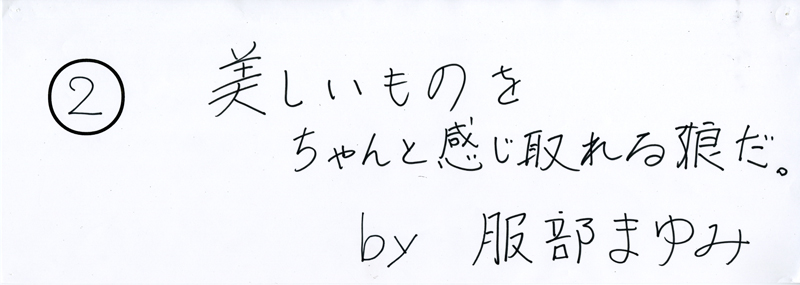 ② 美しいものを
ちゃんと感じ取れる娘だ。
by 服部まゆみ